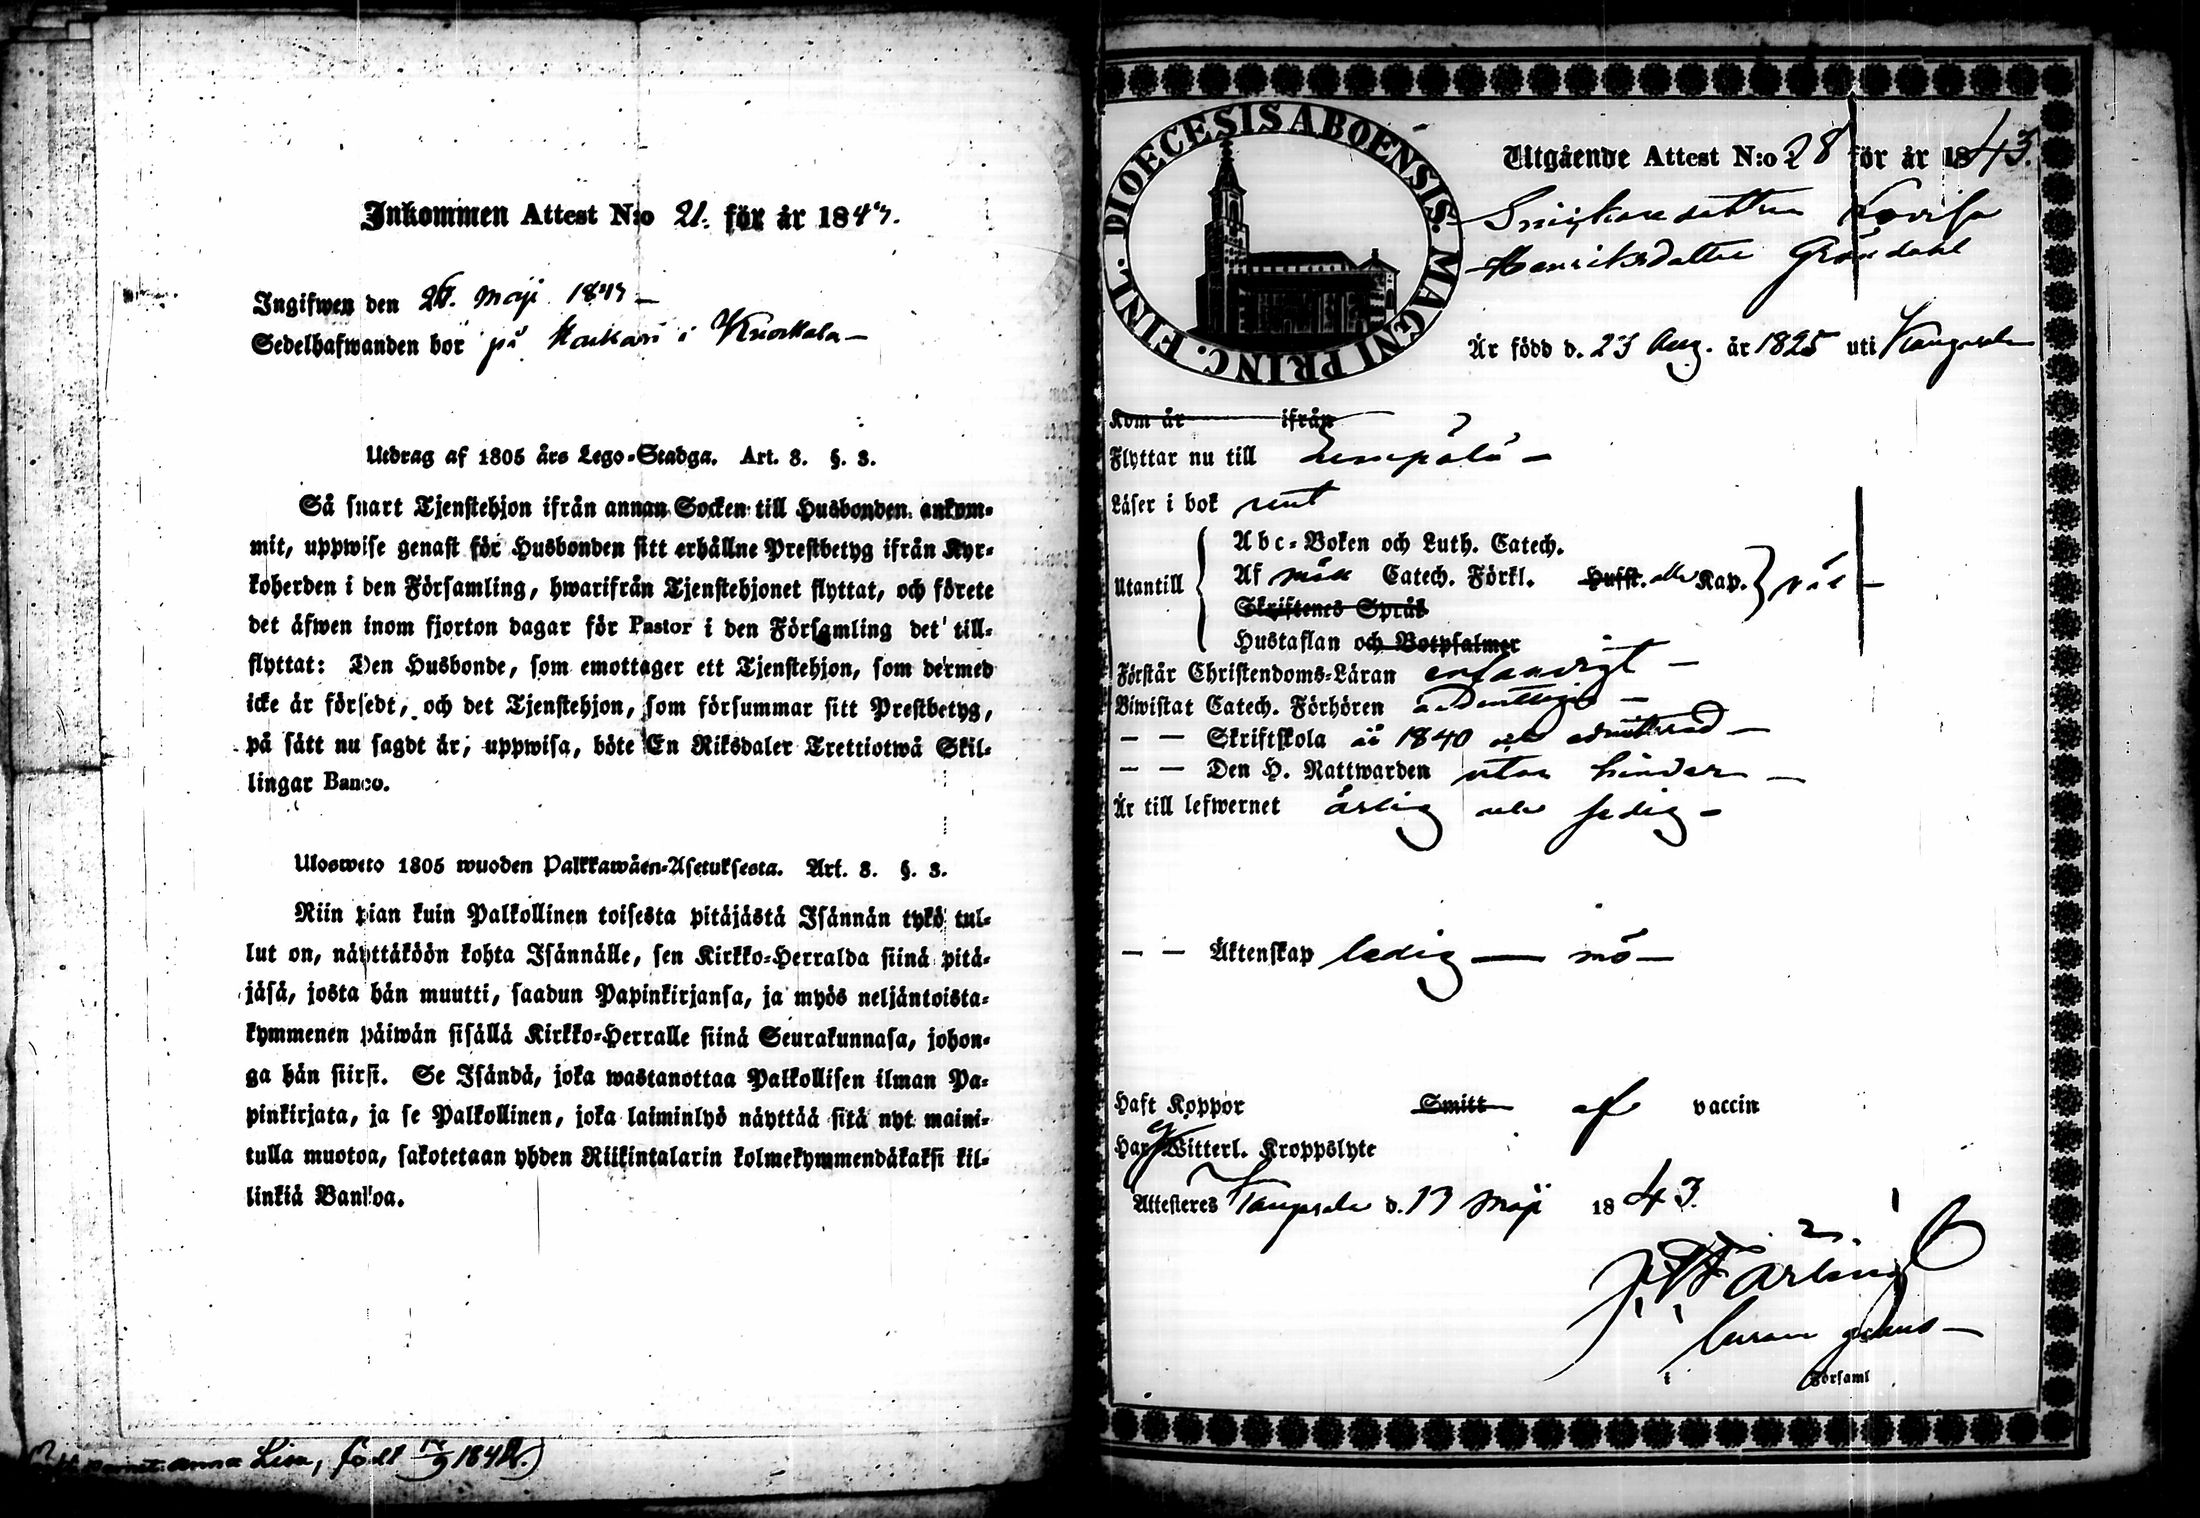 Inkommen Attest N:o 21. för år 1843.
Ingifwen den 26. Maji 1843 —
Sedelhafwanden bor på i Kuokkala —
Utdrag af 1805 års Lego-Stadga. Art. 8. §. 3.
Så snart Tjenstehjon ifrån annan Socken till Husbonden ankom-
mit, uppwise genast för Husbonden sitt erhållne Prestbetyg ifrån Kyr-
koherden i den Församling, hwarifrån Tjenstehjonet flyttat, och förete
det äfwen inom fjorton dagar för Pastor i den Församling det till-
flyttat: Den Husbonde, som emottager ett Tjenstehjon, som dermed
icke är försedt, och det Tjenstehjon, som försummar sitt Prestbetyg,
på sätt nu sagdt är, uppwisa, böte En Riksdaler Trettiotwå Skil-
lingar Banco.
Ulosweto 1805 wuoden Palkkawäen-Asetuksesta. Art. 8. §. 3.
Niin pian kuin Palkollinen toisesta pitäjästä Isännän tykö tul-
lut on, näyttäköön kohta Isännälle, sen Kirkko-Herralda siinä pitä-
jäsä, josta hän muutti, saadun Papinkirjansa, ja myös neljäntoista-
kymmenen päiwän sisällä Kirkko-Herralle siinä Seurakunnasa, johon-
ga hän siirsi. Se Isändä, joka wastanottaa Palkollisen ilman Pa-
pinkirjata, ja se Palkollinen, joka laiminlyö näyttää sitä nyt maini-
tulla muotoa, sakotetaan yhden Riikintalarin kolmekymmendäkaksi kil-
linkiä Bankoa.
barnet Anna Lisa, född 1842.)
DIOECESIS ABOENSIS. MAGNI PRINC. FINL.
Utgående Attest N:o 28 för år 1843.
Lovisa
Henriksdotter Gröndahl
Är född d. 23 Aug. år 1825 uti Kangasala
Kom år ifrån
Flyttar nu till Lempälä —
Läser i bok rent
Utantill
Abc-Boken och Luth. Catech.
Af Catech. Förkl. Hufst. Kap. } väl —
Skriftenes Språk
Hustaflan och Botpsalmer
Förstår Christendoms-Läran enfaldigt —
Biwistat Catech. Förhören ordentligt —
— — Skriftskola år 1840 och admitterad —
— — Den H. Nattwarden utan hinder —
Är till lefwernet ärlig och sedig —
— — Äktenskap ledig — mö —
Haft Koppor Smitt af vaccin
Har ej Witterl. Kroppslyte
Attesteres Kangasala d. 13 Maji 1843.
i Församl